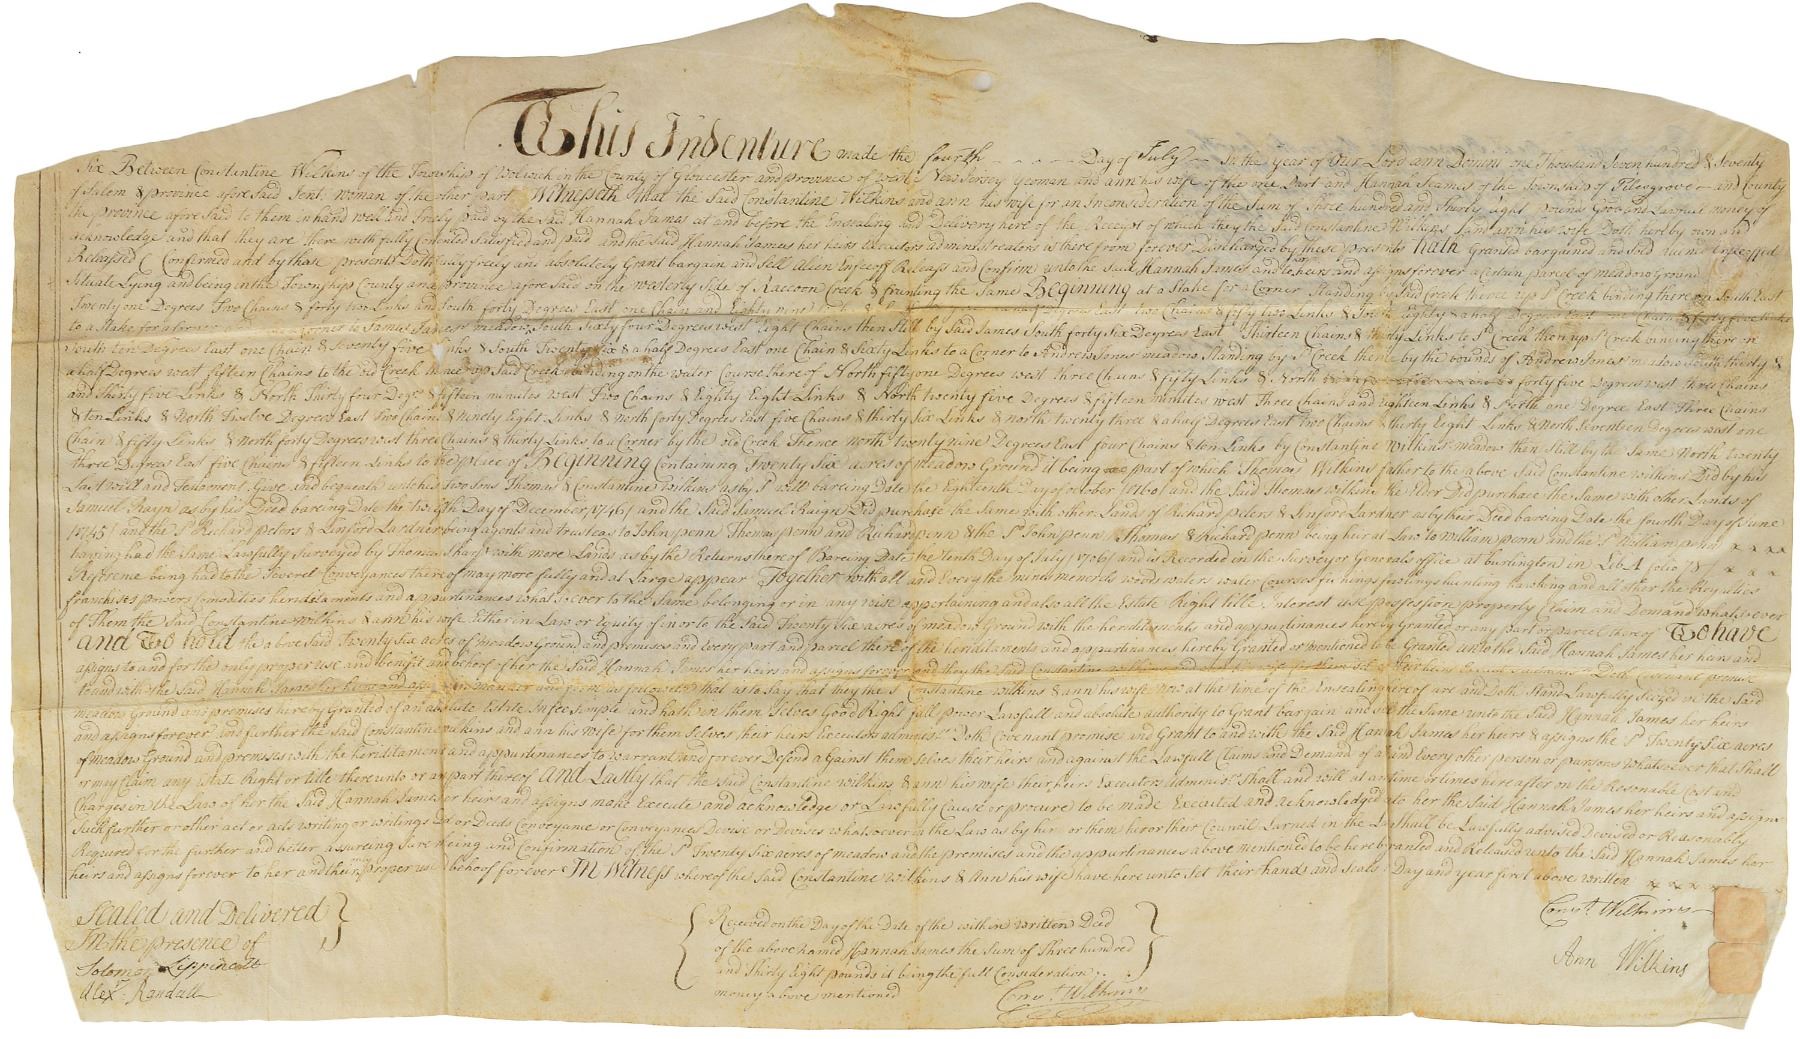 This Indenture made the fourth Day of July In the year of Our Lord ann Domini one Thousand Seven hundred & Seventy
Six Between Constantine Wilkins of the Township of Woliwich in the County of Gloucester and province of west New Jersey yeoman and ann his wife of the one Part and Hannah James of the Township of Pilesgrove and County
of Salem & province afore Said Jent. woman of the other part Witneseth that the Said Constantine Wilkins and ann his wife for an Inconsideration of the Sum of Three hundred and Thirty Eight pounds Good and Lawfull money of
the province afore Said to them in hand well and Truly paid by the Said Hannah James at and before the Ensealing and Delivery here of the Receipt of which they the Said Constantine Wilkins & ann his wife Doth herby own and
acknowledge and that they are there with fully contented Satisfied and paid and the Said Hannah James her heirs Executors administreators is there from forever Discharged by these presents hath Granted bargained and Sold
Releassed & Confirmed and by those presents Doth fully freely and absolutely Grant bargain and Sell Alien Enfeoff Releass and Confirm unto the Said Hannah James and to heirs and assigns forever a Certain parcel of meadow Ground
Situate Lying and being in the Township County and province afore Said on the westerly Side of Raccoon Creek & frunting the Same Beginning at a Stake for a Corner Standing by Said Creek thence up Sd Creek binding there on South East
Twenty one Degrees Two Chains & forty two Links and South forty Degrees East one Chain and Eighty nine East two Chains & fifty two Links & South Eighty & a half Degrees East one Chain & forty five Links
to a Stake for a Corner to James James's meadow South Sixty four Degrees west Eight Chains then Still by Said James South forty Six Degrees East Thirteen Chains & thirty Links to Sd Creek then up Sd Creek binding there on
South ten Degrees East one Chain & Seventy five Links & South Twenty Six & a half Degrees East one Chain & Sixty Links to a Corner to Andrew Jones meadow Standing by Sd Creek thence by the bounds of Andrew Jones' meadow South thirty &
a half Degrees west fifteen Chains to the old Creek thence up Said Creek bounding on the water Course there of North fifty one Degrees west three Chains & fifty Links & North forty five Degrees west three Chains
and thirty five Links & North Thirty four Degs & fifteen minutes west Two Chains & Eighty Eight Links & North twenty five Degrees & fifteen minutes west Three Chains and Eighteen Links & North one Degree East Three Chains
& ten Links & North Twelve Degrees East Two Chains & Ninety Eight Links & North forty Degrees East five Chains & thirty Six Links & north twenty three & a half Degrees East Two Chains & thirty Eight Links & North Seventeen Degrees west one
Chain & fifty Links & North forty Degrees west three Chains & thirty Links to a Corner by the old Creek Thence north twenty nine Degrees East four Chains & ten Links by Constantine Wilkins' meadow then Still by the Same North twenty
three Degrees East five Chains & fifteen Links to the place of Beginning Containing Twenty Six acres of meadow Ground it being part of which Thomas Wilkins father to the above Said Constantine wilkins Did by his
Last will and Testoment Give and bequeath unto his Two Sons Thomas & Constantine wilkins as by Sd will bareing Date the Eighteenth Day of october 1760/ and the Said Thomas wilkins the Elder Did purchace the Same with other Lands of
Samuel Rayn as by his Deed bareing Date the twelfth Day of December 1746/ and the Said Samuel Raign Did purchase the Same with other Lands of Richard peters & Linford Lardner as by their Deed bareing Date the fourth Day of June
1745/ and the Sd Richard peters & Linford Lardner being agents and trusteas to John penn Thomas penn and Richard penn & the Sd John penn Thomas & Richard penn being heir at Law to William penn and the Sd William penn
having had the Same Lawfully Surveyed by Thomas Sharp with more Lands as by the Returns there of Bareing Date the tenth Day of July 1706/ and is Recorded in the Surveyor Generals office at burlington in Lib A folio 78/
Refrence being had to the Severel Conveyances there of may more fully and at Large appear Together with all and Every the mines menerels woods waters water courses fishings fowlings hunting hawking and all other the Royalties
franchises powers Comodities heriditaments and appurtinances whatsoever to the Same belonging or in any wise appertaining and also all the Estate Right title Interest use possession property Claim and Demand whatsoever
of Them the Said Constantine wilkins & ann his wife Either in Law or Equity of in or to the Said Twenty Six acres of meadow Ground with the heriditaments and appurtinances hereby Granted or any part or parcel there of To have
and To hold the above Said Twenty Six acres of meadow Ground and premises and Every part and parcel there of the heriditaments and appurtinances hereby Granted or mentioned to be Granted unto the Said Hannah James her heirs and
assigns to and for the only proper use and benefit and behoof of her the Said Hannah James her heirs and assigns forever and they the Said Constantine wilkins and ann his wife for them Selves their heirs Doth Covenant promise
to and with the Said Hannah James her heirs and assigns in manner and form as followeth that is to Say that they the Sd Constantine wilkins & ann his wife now at the time of the Ensealing here of are and Doth Stand Lawfully Siezed in the Said
meadow Ground and premises hereby Granted of an absolute Estate In fee Simple and hath in them Selves Good Right full power Lawfull and absolute authority to Grant bargain and Sell the Same unto the Said Hannah James her heirs
and assigns forever and further the Said Constantine wilkins and ann his wife for them Selves their heirs Executors adminisrs Doth Covenant promise and Grant to and with the Said Hannah James her heirs & assigns the Sd Twenty Six acres
of meadow Ground and premises with the heriditaments and appurtinances to warrant and forever Defend against them Selves their heirs and against the Lawfull Claims and Demand of all and Every other person or parsons whatsoever that Shall
or may Claim any Estate Right or title there unto or any part there of and Lastly that the Said Constantine wilkins & ann his wife their heirs Executers adminisrs Shall and will at any time or times here after on the Resonable Cost and
Charges in the Law of her the Said Hannah James her heirs and assigns make Execute and acknowledge or Lawfully Cause or procure to be made Executed and acknowledged unto her the Said Hannah James her heirs and assigns
Such further or other act or acts writing or writings Deed or Deeds Conveyance or Conveyances Devise or Devises whatsoever in the Law as by her or them her or their Council Larned in the Law Shall be Lawfully advised Devised or Reasonably
Required for the further and better assureing Sure being and Confirmation of the Sd Twenty Six acres of meadow and the premises and the appurtinances above mentioned to be hereby Granted and Released unto the Said Hannah James her
heirs and assigns forever to her and their only proper use behoof forever In Witness whereof the Said Constantine wilkins & Ann his wife have here unto Set their hands and Seals Day and year first above written
Sealed and Delivered
In the presence of
Solomon Lippincott
Alexr. Randall
Received on the Day of the Date of the within written Deed
of the above named Hannah James the Sum of Three hundred
and Thirty Eight pounds it being the full Consideration
money above mentioned
Const. Wilkins
Const. Wilkins
Ann Wilkins